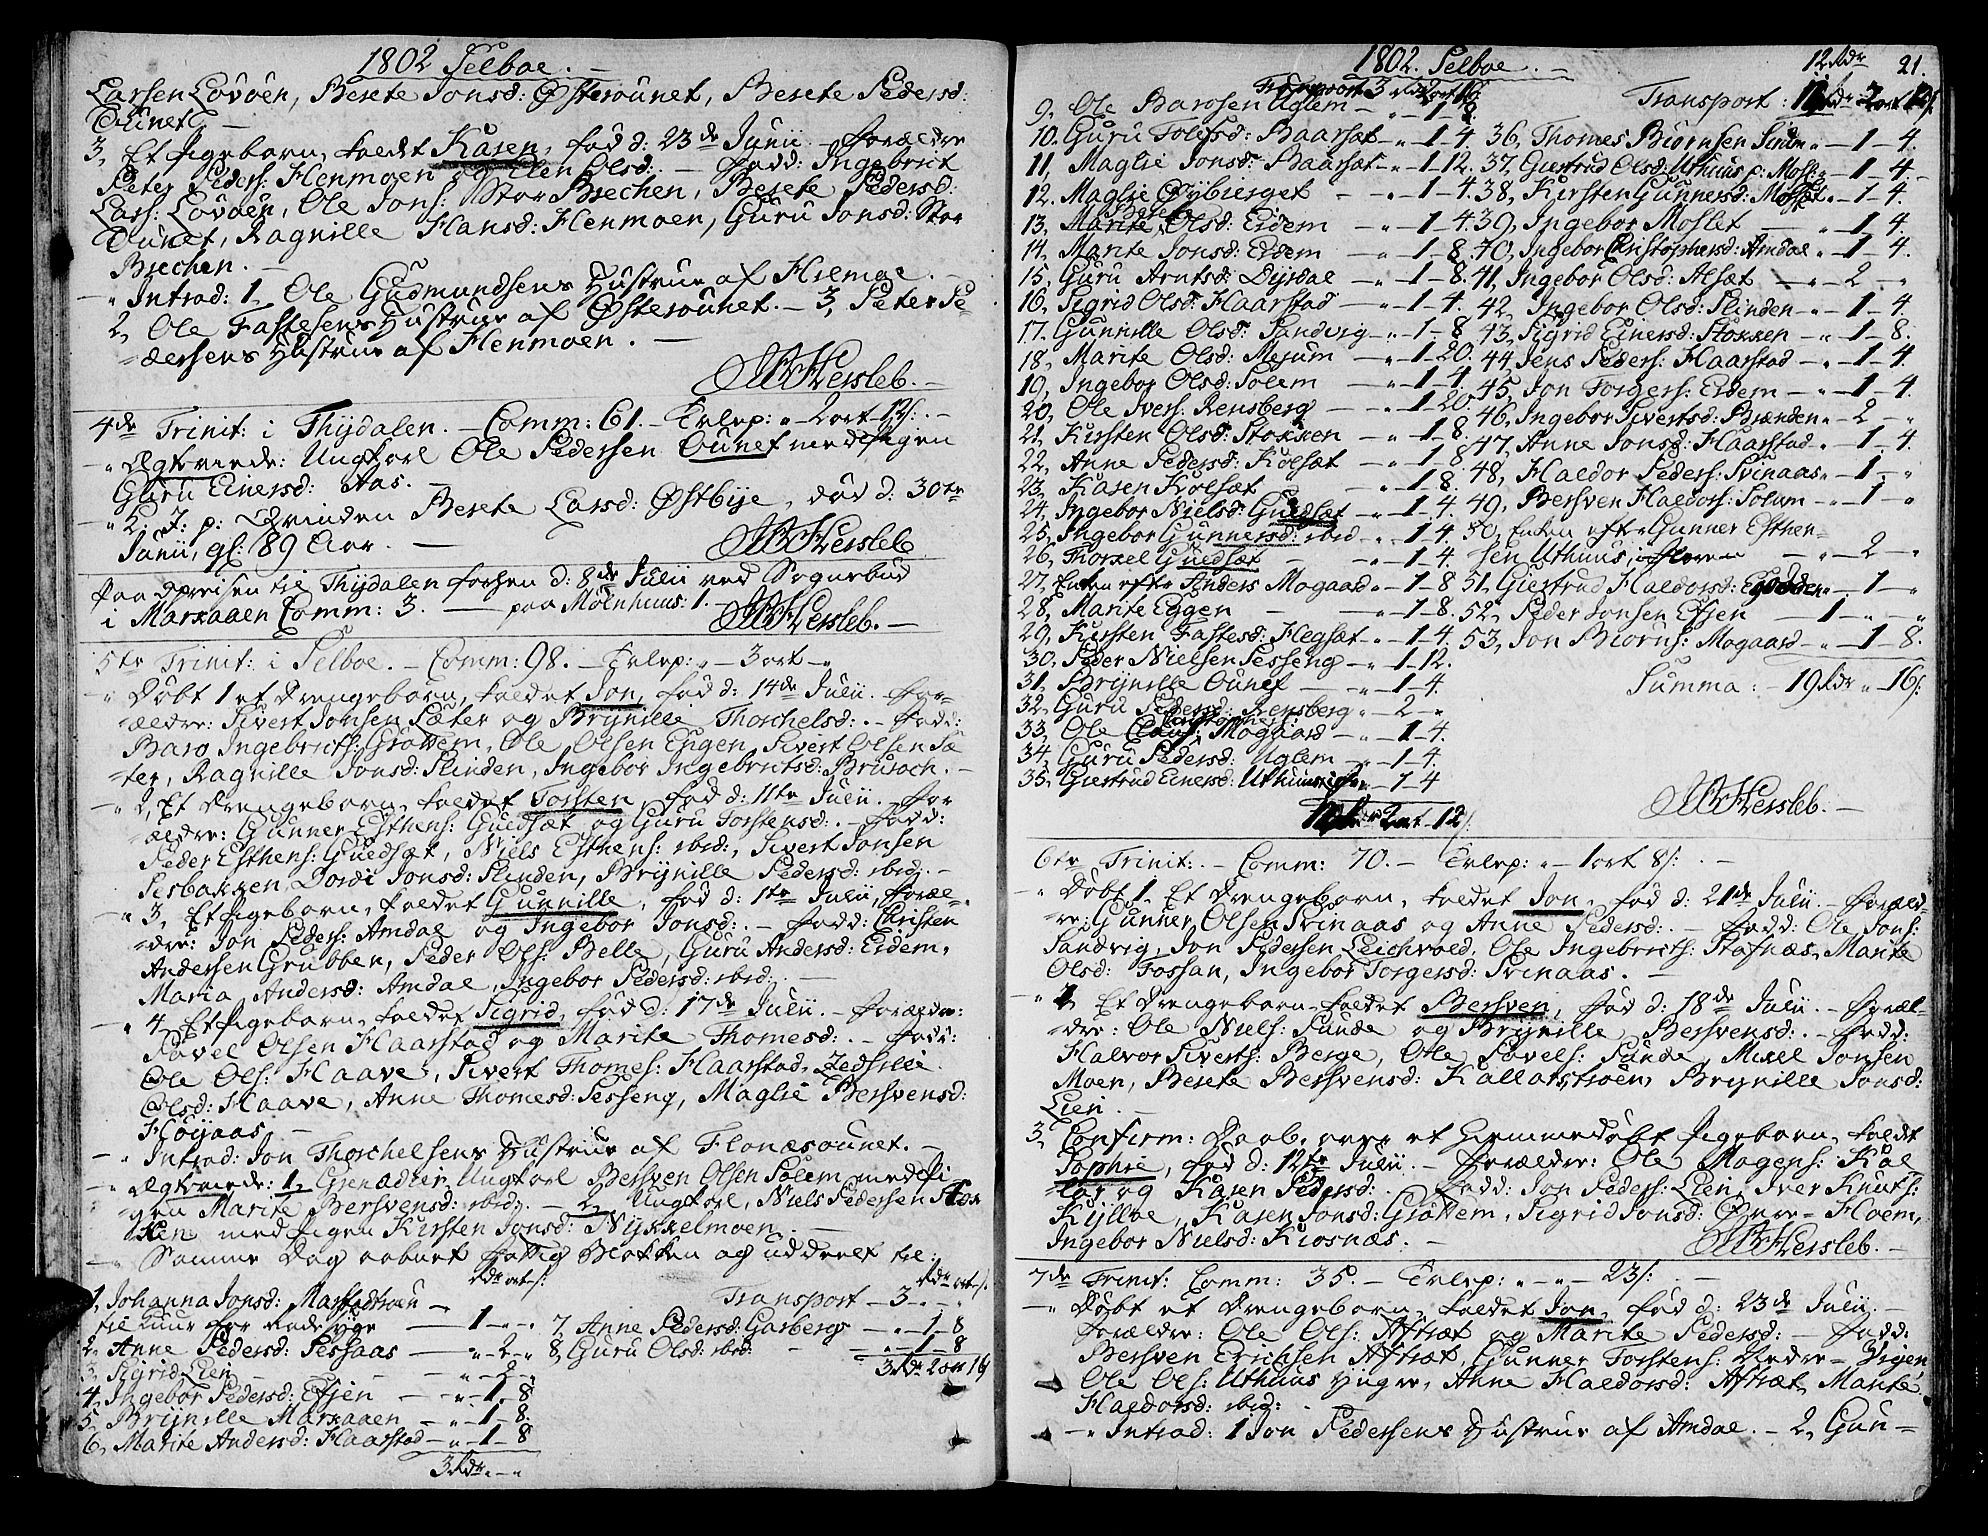 1802 Selboe.
Larsen Lövöen, Berete Jonsd: Østerounet, Berete Pedersd:
Ounet.
3, Et Pigebarn, kaldet Karen, fød d: 23de Junii. - Forældre
Peter Peders: Flenmoen og Elen Olsd: - Fadd: Ingebrict
Lars: Lovöen, Ole Jons: Stor Brechen, Berete Pedersd:
Ounet, Ragnille Hansd: Flenmoen, Guru Jonsd: Stor
Brechen. -
- " Introd: 1, Ole Gudmundsens Hustrue af Hremoe. -
2, Ole Fastesens Hustrue af Østerounet. - 3, Peter Pe-
dersens Hustrue af Flenmoen. -
HHersleb. -
4de Trinit: i Thydalen. - Comm: 61. - Tvlep: " 2 ort - 12 s: -
- " Ægteviede: Ungkarl Ole Pedersen Ounet med Pigen
Guru Einersd: Aas. -
- " L: J: p: Qvinden Berete Larsd: Østbÿe, død d: 30te
Junii, gl: 89 Aar. -
HHersleb.
Paa Opreisen til Thydalen forhen d: 8de Julii ved Sognebud
i Marxaaen Comm: 3. - paa Moenhuus: 1. - HHersleb. -
5te Trinit: i Selboe. - Comm: 98. - Tvlep: " - 3 ort - "
- " Døbt 1 et Drengebarn, kaldet Jon, fød d: 14de Julii. For-
ældre: Sivert Jonsen Sæter og Brynille Thorchelsd: - Fadd:
Baro Ingebricts: Grøttem, Ole Olsen Engen, Sivert Olsen Sæ-
ter, Ragnille Jonsd: Slinden, Ingebor Ingebrictsd: Brurock. -
- " 2, Et Drengebarn, kaldet Torsten, fød d: 11te Julii. For
ældre: Gunner Esthens: Guldsæt og Guru Torstensd: - Fadd:
Peder Esthens: Guldsæt, Niels Esthens: ibid:, Sivert Jonsen
Sesbakken, Dordi Jonsd: Slinden, Brynille Pedersd: ibid: -
- " 3, Et Pigebarn, kaldet Gunnille, fød d: 1te Julii, Foræl-
dre: Jon Peders: Amdal og Ingebor Jonsd: - Fadd: Christen
Andersen Grubben, Peder Ols: Belle, Guru Andersd: Eidem,
Maria Andersd: Amdal, Ingebor Pedersd: ibid: -
- " 4, Et Pigebarn, kaldet Sigrid, fød d: 17de Julii. - Forældre:
Povel Olsen Haarstad og Marite Thomesd: - Fadd:
Ole Ols: Haave, Sivert Thomes: Haarstad, Zedsele
Olsd: Haave, Anne Thomesd: Sesseng, Maglie Bersvensd:
Høyaas. -
- " Introd: Jon Thorchelsens Hustrue af Flonæsounet. -
- " Ægteviede: 1, Grenadier, Ungkarl Bersven Olsen Solem med Pi
gen Marite Bersvensd: ibid: - 2, Ungkarl, Niels Pedersen Stok
ken med Pigen Kirsten Jonsd: Nykkelmoen. -
- " Samme Dag aabnet Fattig Blokken og uddeelt til:
Rdr ort s:
1, Johanna Jonsd: Marstadtroen
til Huur for Rade Hÿe - 1 - " - "
2, Anne Pedersd: Sessaas - " - 2 - "
3, Sigrid Lien - " - 2 - "
4, Ingebor Pedersd: Efjen - " - 1 - 8
5, Brynille Marxaaen - " - 1 - 8
6, Marite Andersd: Haarstad - " - 1 - 8
3 Rdr " - "
Rdr ort s:
Transport - 3 - " - "
7, Anne Pedersd: Garberg - " - 1 - 8
8, Guru Olsd: ibid: - " - 1 - 8
3 Rdr 2 ort 16
1802. Selboe. 21.
Transport 3 Rdr 2 ort 16
9, Ole Barosen Uglem - " - 1 - 8
10, Guru Tolefsd: Baarsæt - " - 1 - 4.
11, Maglie Jonsd: Baarsæt - " - 1 - 12.
12, Maglie Dybierget - " - 1 - 4.
13, Berete Olsd: Eidem - " - 1 - 4
14, Marite Jonsd: Eidem - " - 1 - 8.
15, Guru Arntsd: Dyrdal - " - 1 - 8.
16, Sigrid Olsd: Haarstad - " - 1 - 4.
17, Gunnille Olsd: Sandvig - " - 1 - 8
18, Marite Olsd: Mejum - " - 1 - 20.
19, Ingebor Olsd: Solem - " - 1 - 4.
20, Ole Ivers: Rensberg - " - 1 20.
21, Kirsten Olsd: Stokken - " - 1 8.
22, Anne Pedersd: Kolsæt - " - 1 8.
23, Karen Kolsæt - " - 1 8.
24, Ingebor Nielsd: Guldsæt - " - 1 4.
25, Ingebor Gunnersd: ibid - " - 1 4.
26, Thorkel Guldsæt - " - 1 4.
27, Enken efter Anders Mogaard - " - 1 - 8
28, Marite Eggen - " - 1 8.
29, Kirsten Fastesd: Flegsæt - " - 1 - 4.
30, Peder Nielsen Sesseng - " - 1 - 12.
31, Brynille Ounet - " - 1 - 4.
32, Guru Pedersd: Rensberg - " - 2 - "
33, Ole Mogaard - " - 1 - 4.
34, Guru Pedersd: Uglem - " - 1 - 4.
35, Giertrud Einersd: Uthuus - 1 - 4
2 ort - 12 s:
12 Rdr
Transport:
36, Thomes Biørnsen Sirum " - 1 - 4.
37, Giertrud Olsd: Uthuus p: Mos: " - 1 - 4.
38, Kirsten Gunnersd: Moslet " - 1 - 4.
39, Ingebor Moslet - " - 1 - 4.
40, Ingebor Christophersd: Amdal " - 1 - 4.
41, Ingebor Olsd: Alsæt - " - 2 - "
42, Ingebor Olsd: Slinden - " - 1 - 4.
43, Sigrid Einersd: Stokken - " - 1 - 8.
44, Jens Peders: Haarstad - " - 1 - 4.
45, Jon Torgers: Eidem - " - 1 - 4.
46, Ingebor Sivertsd: Brænden " - 2 - "
47, Anne Jonsd: Haarstad " - 1 - 4.
48, Haldor Peders: Svinaas " - 1 - "
49, Bersven Haldors: Solum - " - 1 - "
50, Enken efter Gunner Esthen-
sen Uthuus, i Floren - " - 2 - "
51, Giertrud Haldorsd: - " - 1 - "
52, Peder Jonsen Efjen - 1 - " - "
53, Jon Biørns: Mogaard - " - 1 - 8.
Summa: - 19 Rdr " 16 s:
HHersleb. -
6te Trinit: - Comm: 70. - Tvlep: " - 1 ort 8 s: -
- " Døbt 1, Et Drengebarn, kaldet Jon, fød d: 21de Julii. - Foræld-
re: Gunner Olsen Svinaas og Anne Pedersd: - Fadd: Ole Jons:
Sandvig, Jon Pedersen Leichvold, Ole Ingebricts: Stafnæs, Marite
Olsd: Fossan, Ingebor Torgersd: Svinaas. -
- " 2, Et Drengebarn, kaldet Bersven, fød d: 18de Julii. - Foræl-
dre: Ole Niels: Sunde og Brynille Bersvensd: - Fadd:
Halvor Siverts: Berge, Ole Povels: Sunde, Mikel Jonsen
Moen, Berete Bersvensd: Kallarstrøen, Brynille Jonsd:
Lien. -
3, Confirm: Daab, over et hjemmedøbt Pigebarn, kaldt
Sophie, fød d: 12te Julii. - Forældre: Ole Mogens: Kal
lar og Karen Pedersd: - Fadd: Jon Peders: Lien, Iver Knuts:
Kyllloe, Karen Jonsd: Grøttem, Sigrid Jonsd: Øvre - Floem,
Ingebor Nielsd: Kiosnæs. -
HHersleb. -
7de Trinit: Comm: 35. - Tvlep: " - " - 23 s: -
- " Døbt et Drengebarn, kaldet Jon, fød d: 23de Julii. -
Forældre: Ole Ols: Aftræt og Marite Pedersd: - Fadd:
Bersven Erichsen Aftræt, Gunner Torstens: Nedre - Vigen
Ole Ols: Uthuus Yngre, Anne Haldorsd: Aftræt, Marite
Haldorsd: ibid: -
- " Introd: 1 Jon Pedersens Hustrue af Amdal. - 2, Gun-